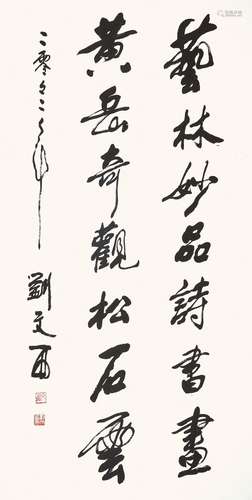 藝林妙品詩書畫
黃岳奇觀松石雲
二零零二年
劉文西